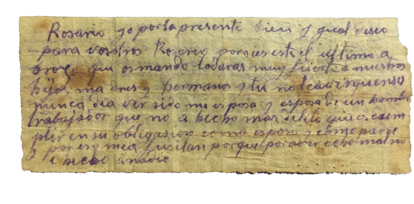 Rosario yo por la presente bien y igual deseo
para vosotros Rosario por ques este el ultimo a
que os mando todaras muy fuerte a nuestros
hijos madres y hermano y tu no te averguenses
nunca dia ver sido mi esposa y esposa de un hombre
trabajador que no a hecho mas delito que es cum
plir en su obligasion como esposo y como padre
por eso mea fusilan porque por aver echo mal no
e hecho a nadie